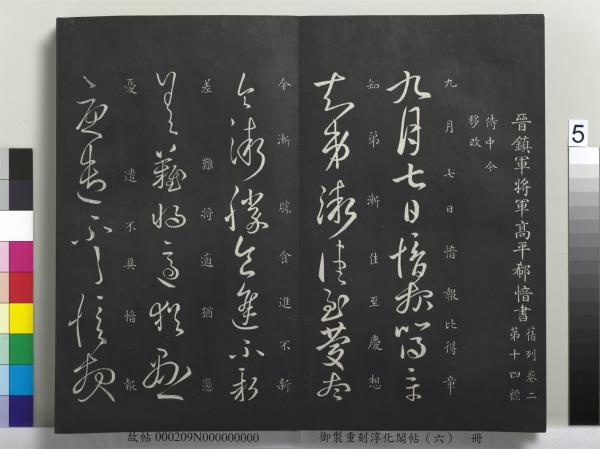 晉鎮軍將軍高平郗愔書
舊列卷二
第十四標
侍中今
移改
九月七日愔報比得章
九月七日愔報比得章
知弟漸佳至慶想
知弟漸佳至慶想
今漸勝食進不新
今漸勝食進不新
差難將適猶懸
差難將適猶懸
憂遣不具愔報
憂遣不具愔報
5
故帖 000209N000000000
御製重刻淳化閣帖(六) 冊